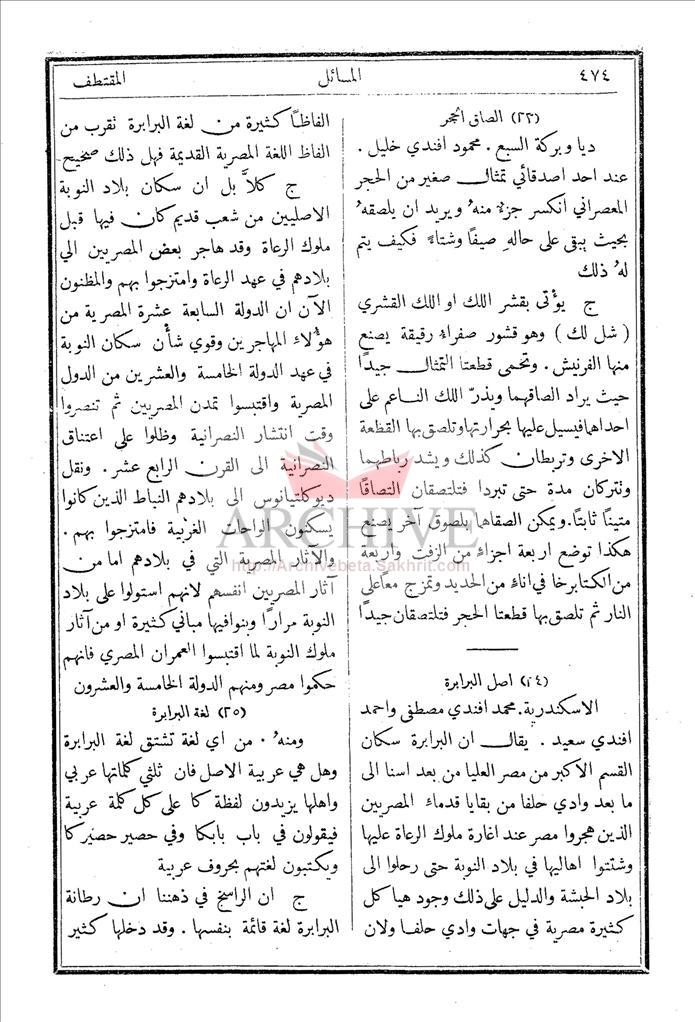 ٤٧٤
المسائل
المقتطف
(٢٣) الصاق الحجر
ديا وبركة السبع. محمود افندي خليل.
عند احد اصدقائي تمثال صغير من الحجر
المعصراني انكسر جزءٌ منهُ ويريد ان يلصقهُ
بحيث يبقى على حالهِ صيفًا وشتاءً فكيف يتم
لهُ ذلك
ج يؤتى بقشر اللك او اللك القشري
(شل لك) وهو قشور صفراء رقيقة يصنع
منها الفرنيش. وتحمى قطعتا التمثال جيدًا
حيث يراد الصاقهما ويذرّ اللك الناعم على
احداهما فيسيل عليها بحرارتها وتلصق بها القطعة
الاخرى وتربطان كذلك ويشد رباطهما
وتتركان مدة حتى تبردا فتلتصقان التصاقًا
متينًا ثابتًا. ويمكن الصاقها بلصوق آخر يصنع
هكذا توضع اربعة اجزاء من الزفت واربعة
من الكتابرخا في اناء من الحديد وتمزج معًا على
النار ثم تلصق بها قطعتا الحجر فتلتصقان جيدًا
(٢٤) اصل البرابرة
الاسكندرية. محمد افندي مصطفى واحمد
افندي سعيد. يقال ان البرابرة سكان
القسم الأكبر من مصر العليا من بعد اسنا الى
ما بعد وادي حلفا من بقايا قدماء المصريين
الذين هجروا مصر عند اغارة ملوك الرعاة عليها
وشتتوا اهاليها في بلاد النوبة حتى رحلوا الى
بلاد الحبشة والدليل على ذلك وجود هياكل
كثيرة مصرية في جهات وادي حلفا ولان
الفاظًا كثيرة من لغة البرابرة تقرب من
الفاظ اللغة المصرية القديمة فهل ذلك صحيح
ج كلاَّ بل ان سكان بلاد النوبة
الاصليين من شعب قديم كان فيها قبل
ملوك الرعاة وقد هاجر بعض المصريين الي
بلادهم في عهد الرعاة وامتزجوا بهم والمظنون
الآن ان الدولة السابعة عشرة المصرية من
هؤلاء المهاجرين وقوي شأن سكان النوبة
في عهد الدولة الخامسة والعشرين من الدول
المصرية واقتبسوا تمدن المصريين ثم تنصروا
وقت انتشار النصرانية وظلوا على اعتناق
النصرانية الى القرن الرابع عشر. ونقل
ديوكلتيانوس الى بلادهم النباط الذين كانوا
يسكنون الواحات الغربية فامتزجوا بهم.
والآثار المصرية التي في بلادهم اما من
آثار المصريين انفسهم لانهم استولوا على بلاد
النوبة مرارًا وبنوا فيها مباني كثيرة او من آثار
ملوك النوبة لما اقتبسوا العمران المصري فانهم
حكموا مصر ومنهم الدولة الخامسة والعشرون
(٢٥) لغة البرابرة
ومنهُ. من اي لغة تشتق لغة البرابرة
وهل هي عربية الاصل فان ثلثي كلماتها عربي
واهلها يزيدون لفظة كا على كل كلمة عربية
فيقولون في باب بابكا وفي حصير حصيركا
ويكتبون لغتهم بحروف عربية
ج ان الراسخ في ذهننا ان رطانة
البرابرة لغة قائمة بنفسها. وقد دخلها كثير
ARCHIVE
http://Archivebeta.Sakhrit.com